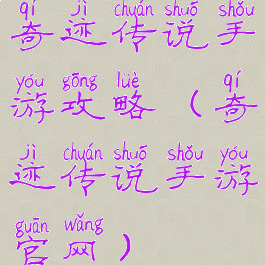 qí jì chuán shuō shǒu
奇迹传说手
yóu gōng lüè qí
游攻略（奇
jì chuán shuō shǒu yóu
迹传说手游
guān wǎng
官网）